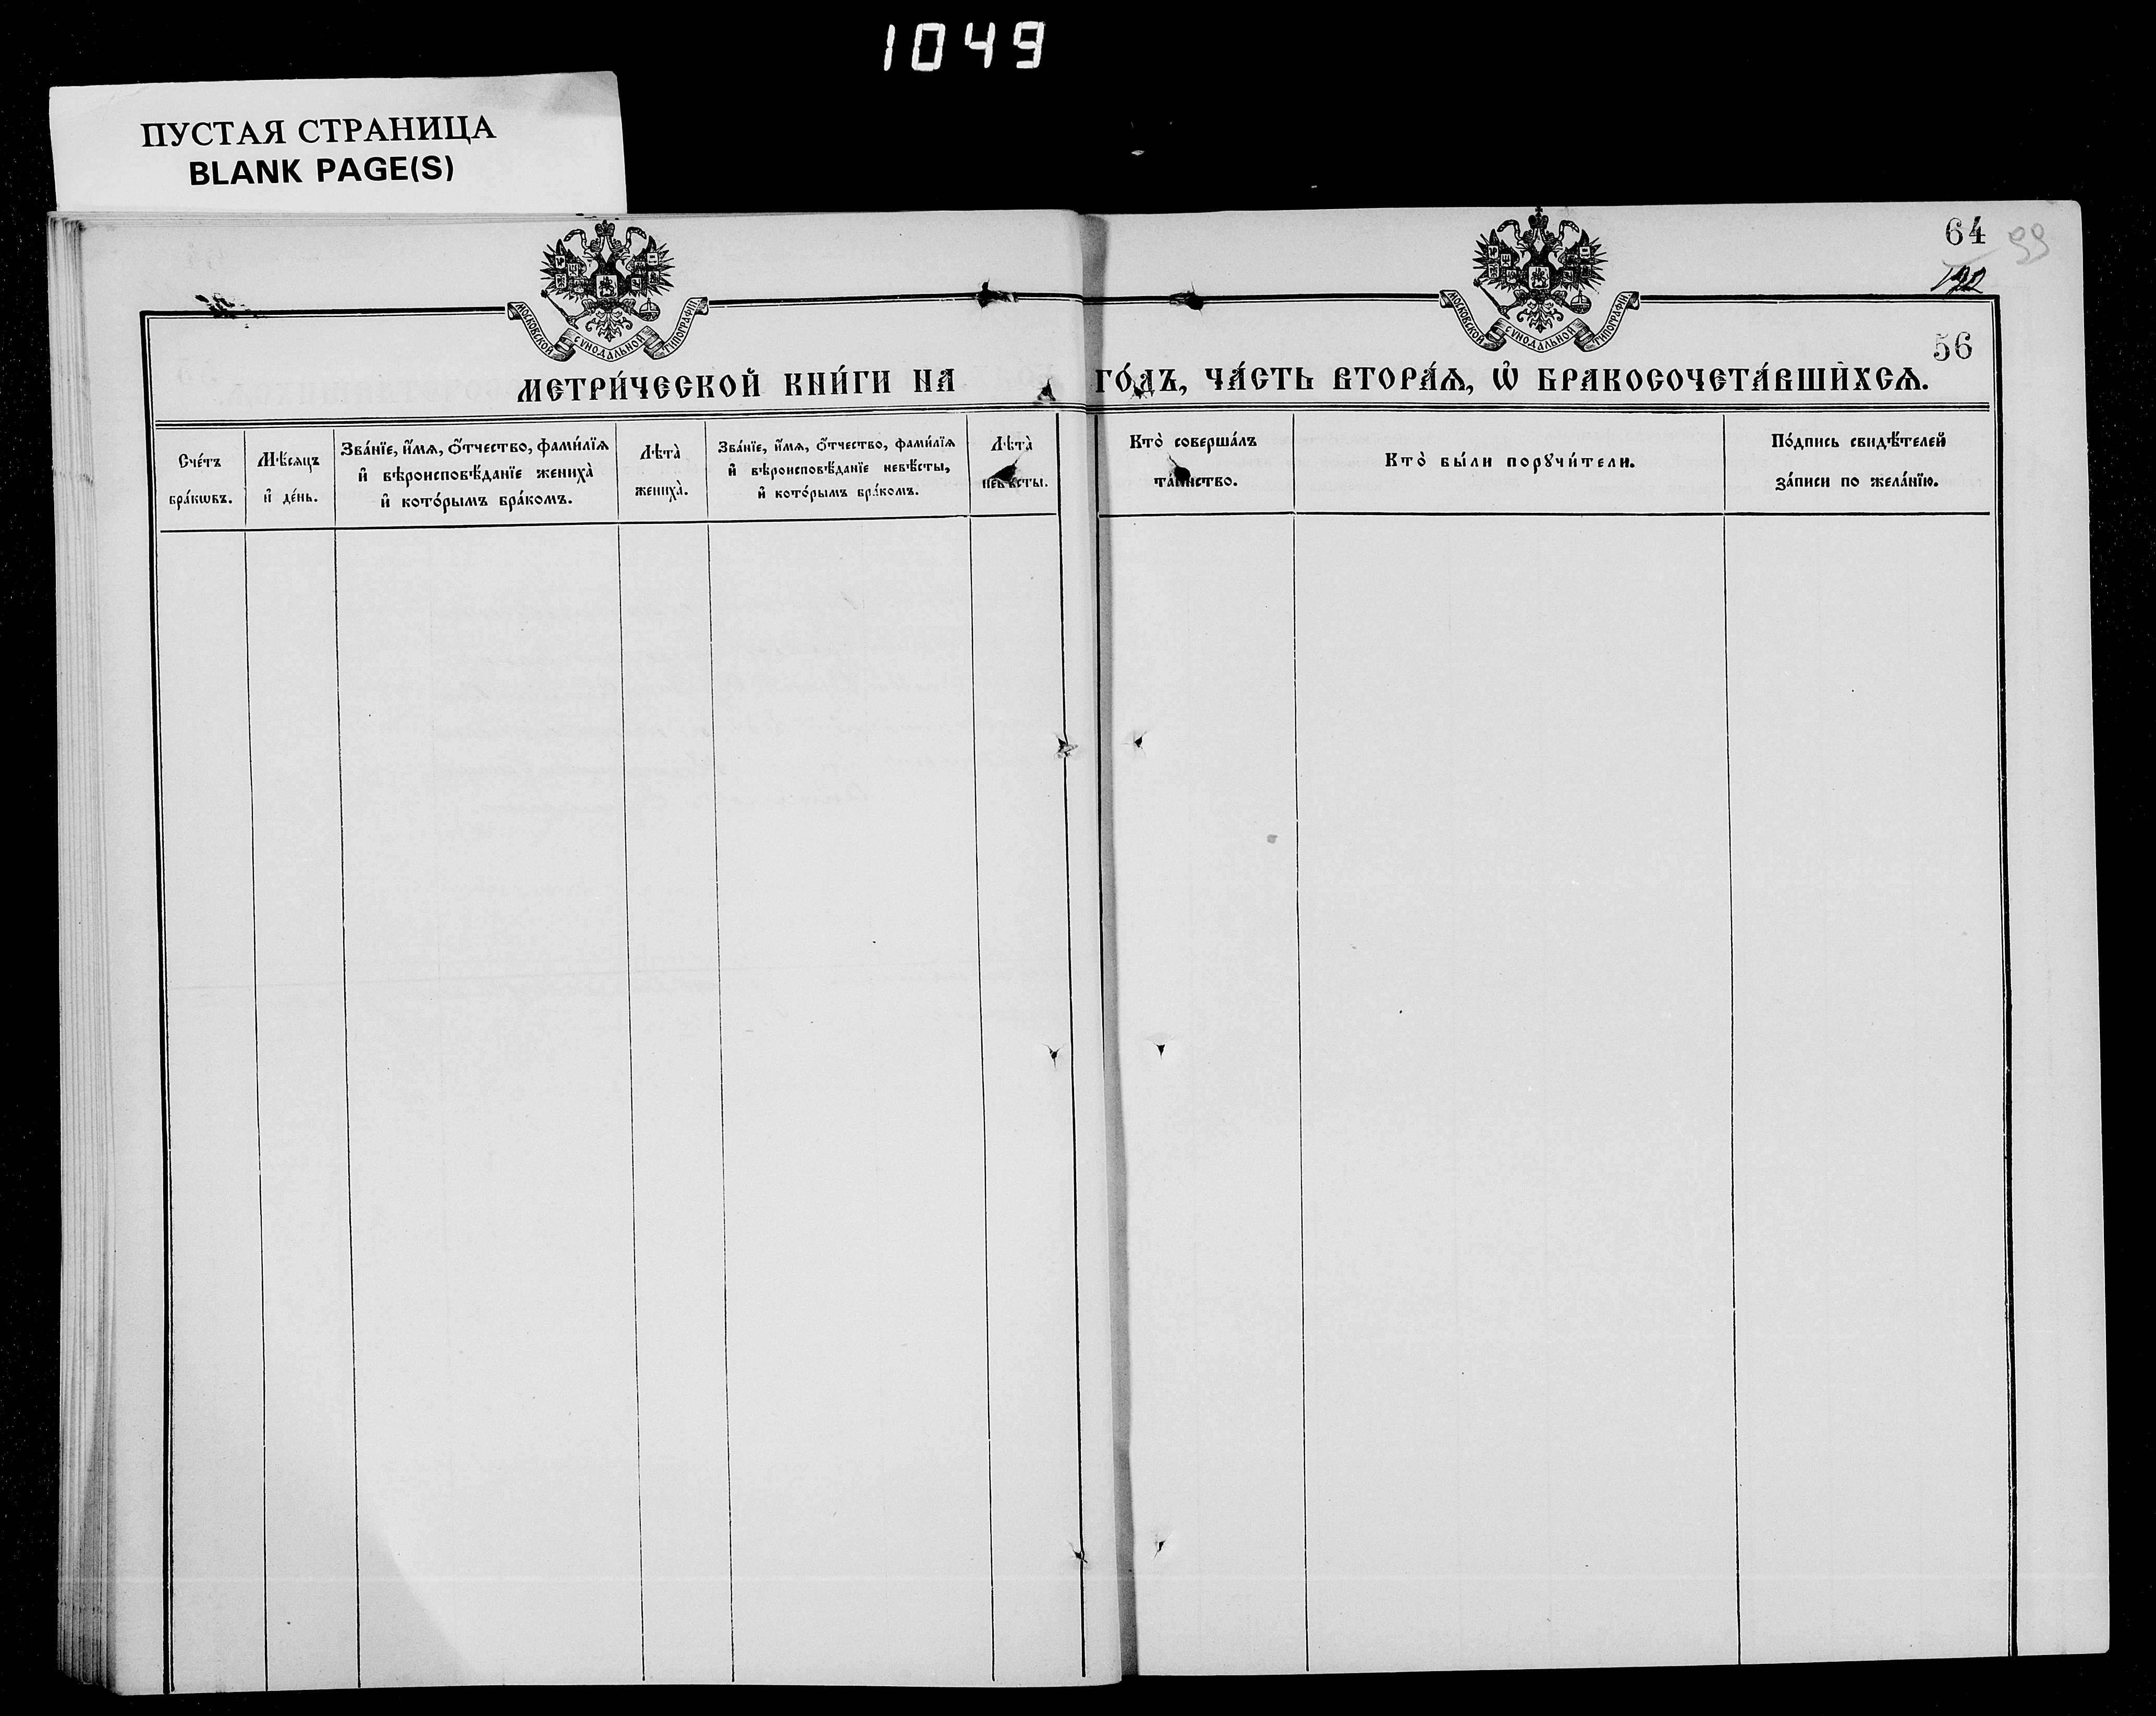 1049
ПУСТАЯ СТРАНИЦА
BLANK PAGE(S)
64
99
56
МОСКОВСКОЙ СѴНОДАЛЬНОЙ ТИПОГРАФІИ.
МОСКОВСКОЙ СѴНОДАЛЬНОЙ ТИПОГРАФІИ.
МЕТРИ́ЧЕСКОЙ КНИ́ГИ НА ГО́ДЪ, ЧА́СТЬ ВТОРА́Ѧ, Ѽ БРАКОСОЧЕТА́ВШИХСѦ.
Сче́тъ
бра́кѡвъ.
Мѣ́сяцъ
и҆ де́нь.
Зва́нїе, и҆́мѧ, ѻ҆́тчество, фами́лїѧ
и҆ вѣроисповѣ́данїе жениха̀
и҆ кото́рымъ бра́комъ.
Лѣта̀
жениха̀.
Зва́нїе, и҆́мѧ, ѻ҆́тчество, фами́лїѧ
и҆ вѣроисповѣ́данїе невѣ́сты,
и҆ кото́рымъ бра́комъ.
Лѣта̀
невѣ́сты.
Кто̀ соверша́лъ
та́инство.
Кто̀ бы́ли порꙋчи́тели.
По́дпись свидѣ́телей
за́писи по жела́нїю.